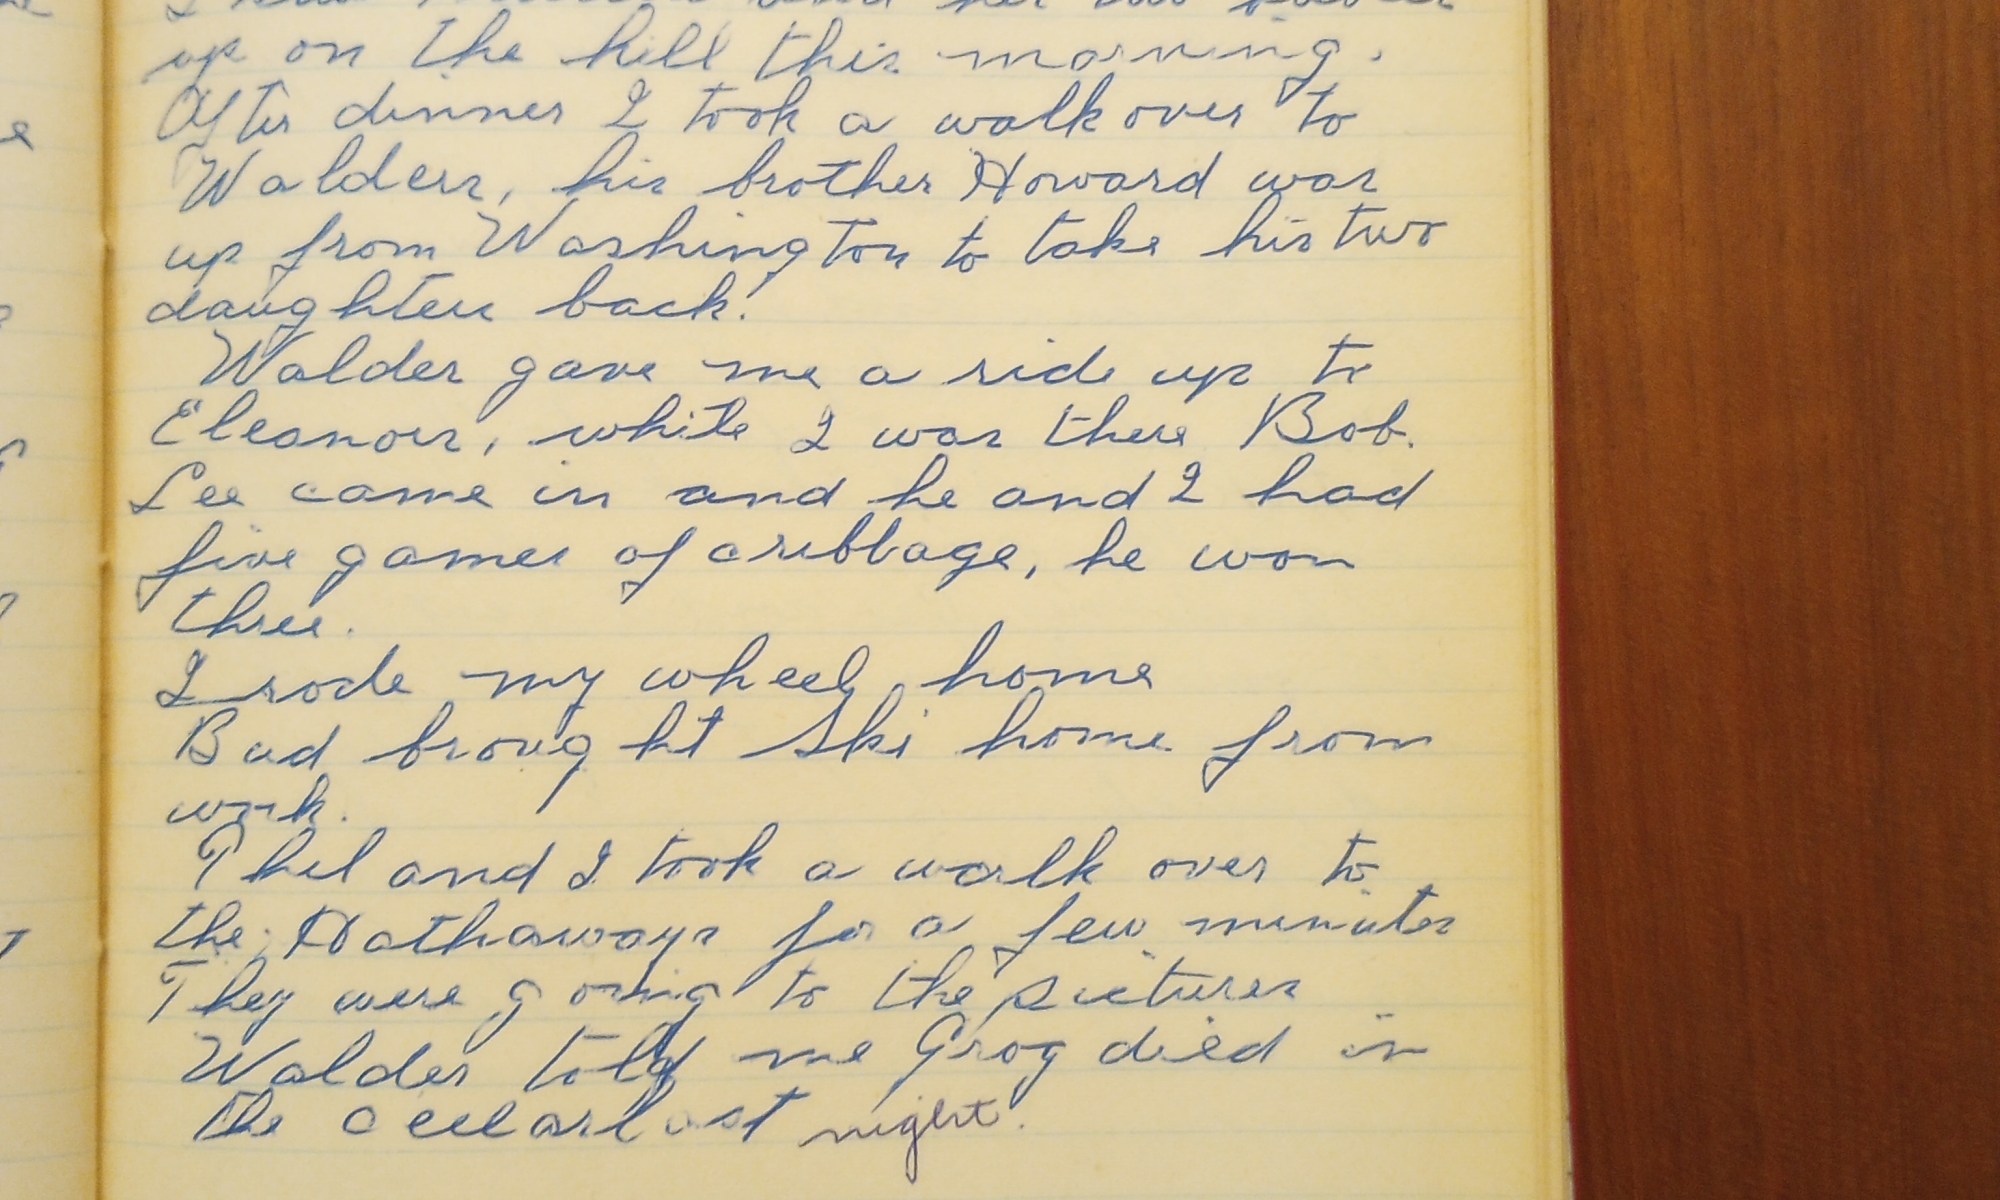 up on the hill this morning.
After dinner I took a walk over to
Walders, his brother Howard was
up from Washington to take his two
daughters back.
Walder gave me a ride up to
Eleanors, while I was there Bob.
Lee came in and he and I had
five games of cribbage, he won
three.
I rode my wheel home
Bud brought Ski home from
work.
Phil and I took a walk over to
the Hathaways for a few minutes
They were going to the pictures
Walder told me Grog died in
the cellar last night.